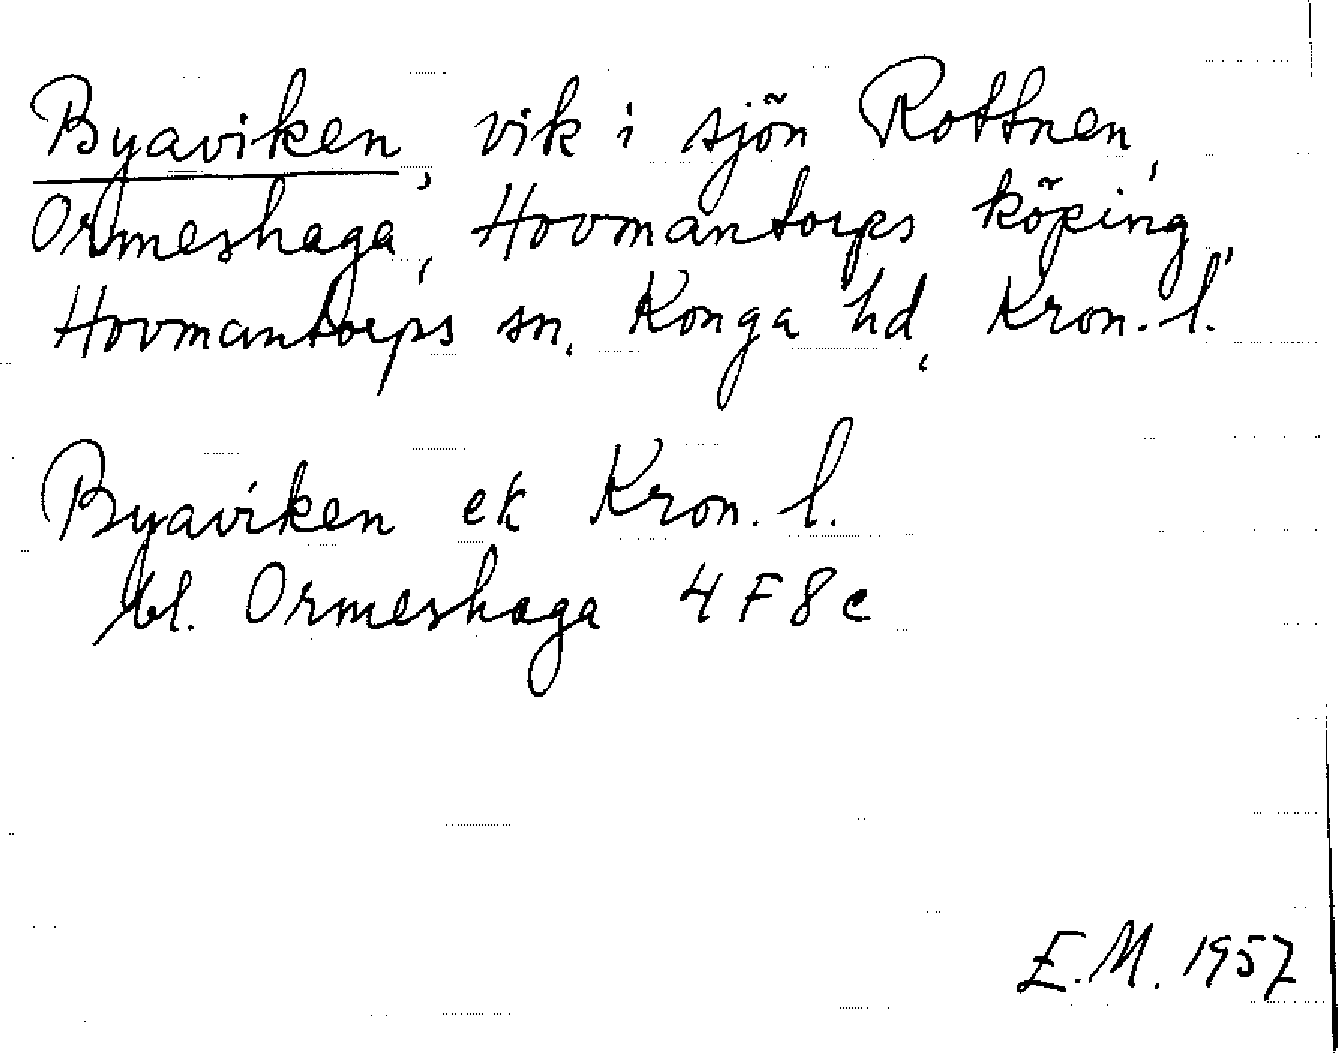 Byaviken, vik i sjön Rottnen,
Ormeshaga, Hovmantorps köping,
Hovmantorps sn, Konga hd, Kron. l.
Byaviken ek Kron. l.
bl. Ormeshaga 4 F 8 c
E.M. 1957